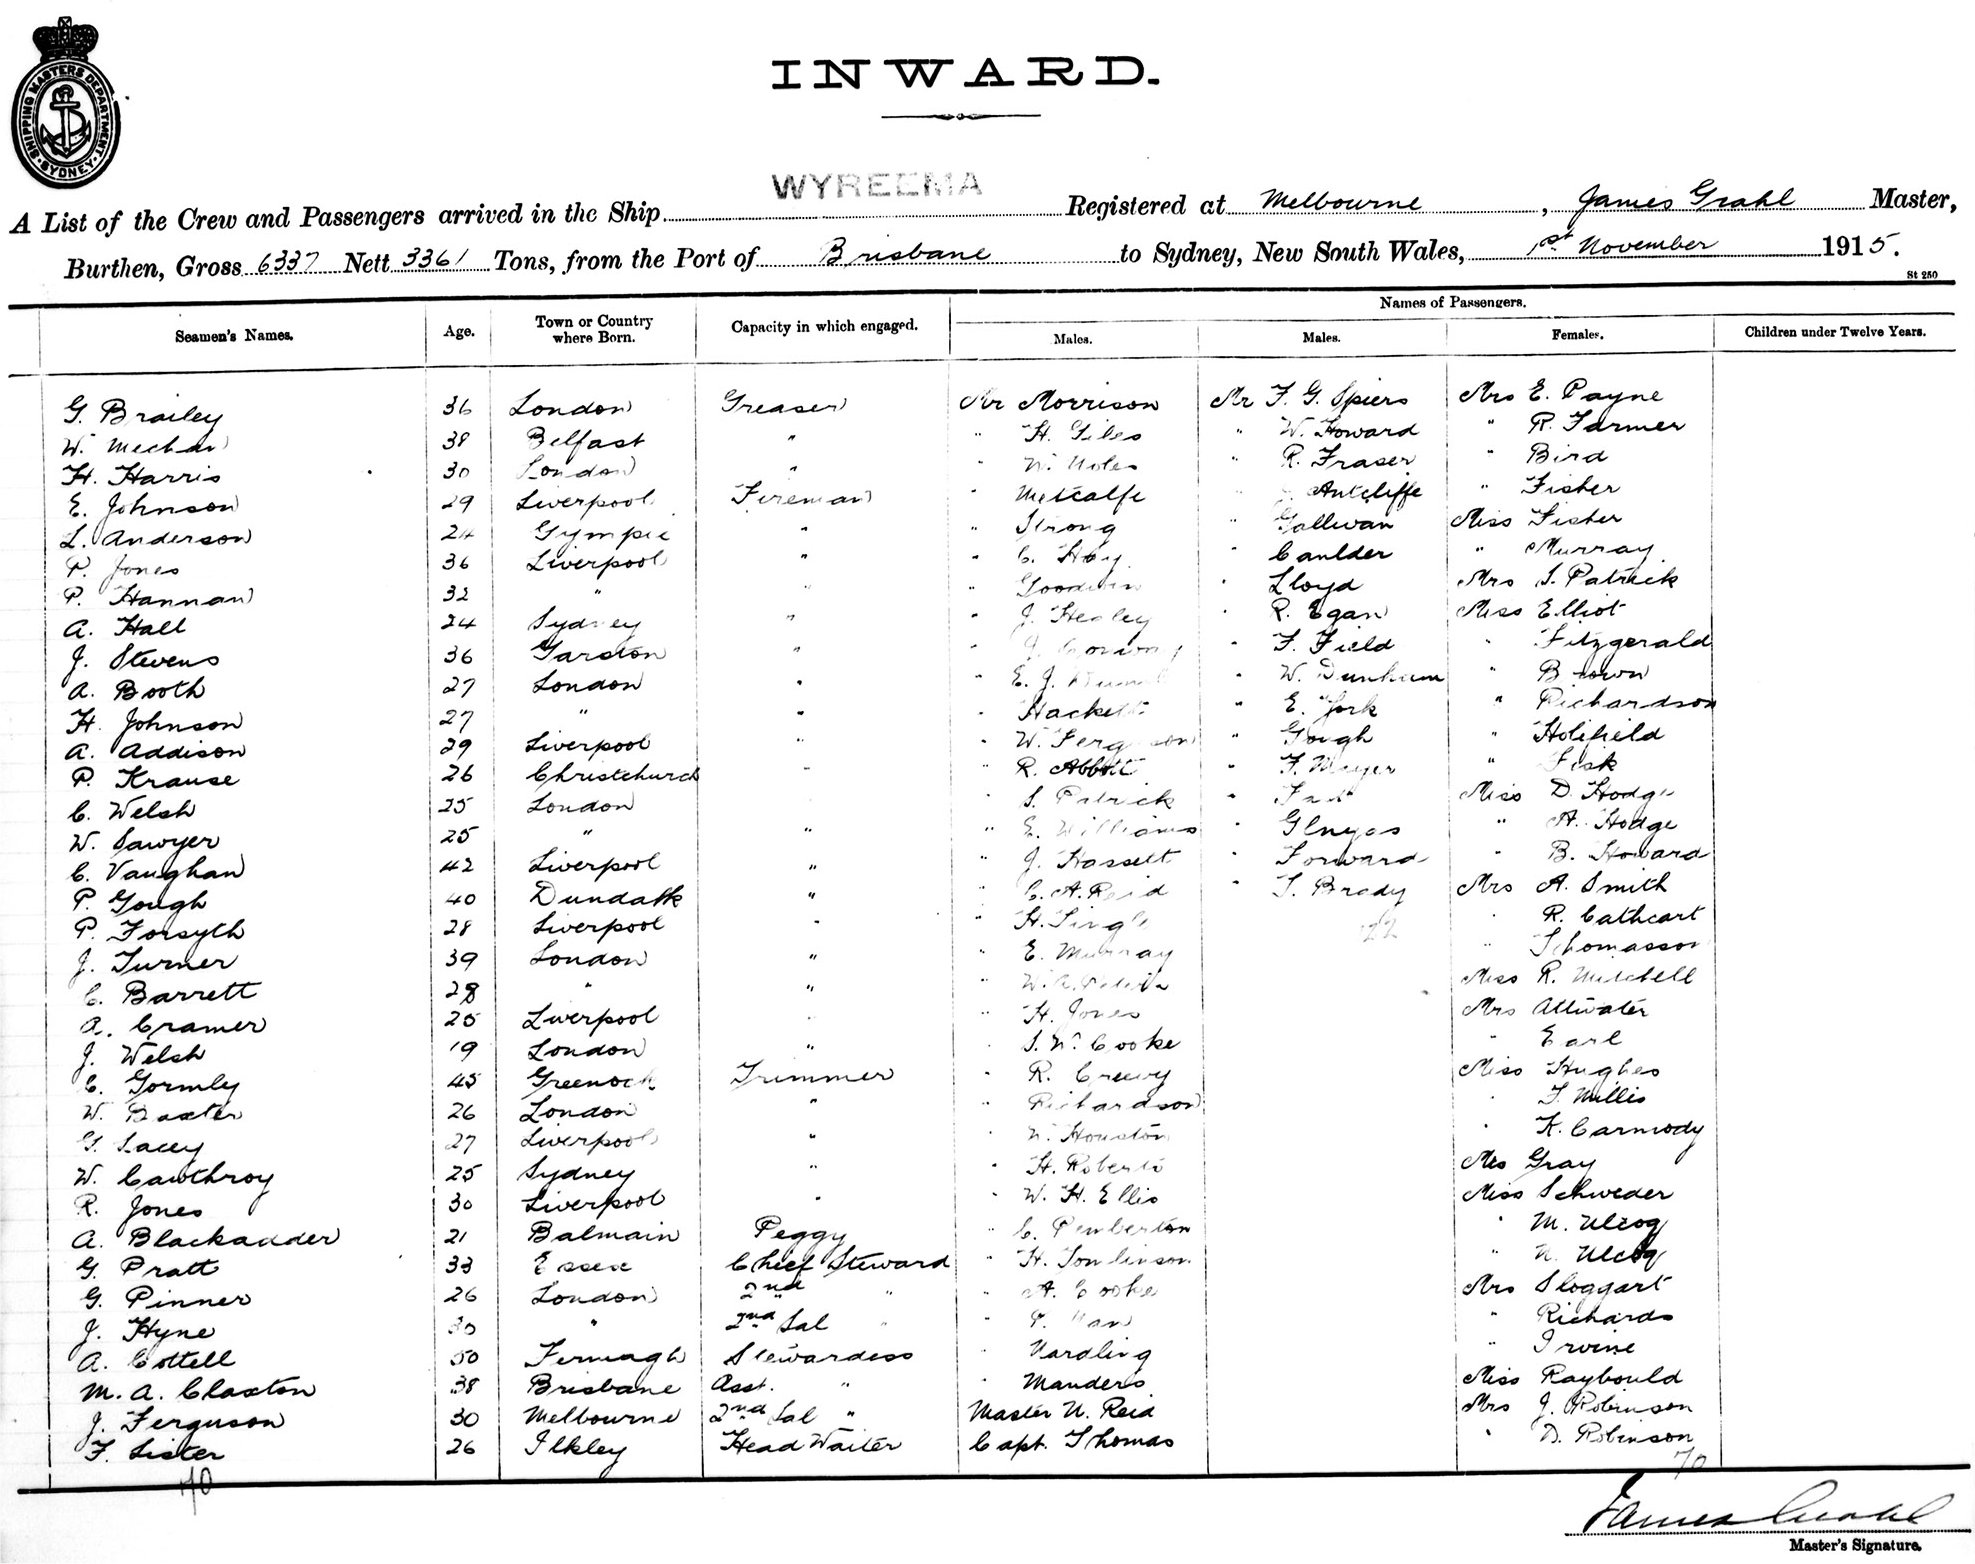 SHIPPING MASTERS DEPARTMENT
SYDNEY
INWARD.
WYREEMA
A List of the Crew and Passengers arrived in the Ship Registered at Melbourne, James Grahl Master,
Burthen, Gross 6337 Nett 3361 Tons, from the Port of Brisbane to Sydney, New South Wales, 1st November 1915.
St 250
Names of Passengers.
Seamen's Names. Age. Town or Country where Born. Capacity in which engaged. Males. Males. Females. Children under Twelve Years.
G. Brailey 36 London Greaser Mr Morrison Mr F. G. Spiers Mrs E. Payne
W. 38 Belfast " " H. Giles " W. Howard " R. Farmer
H. Harris 30 London " " " R. Fraser " Bird
E. Johnson 29 Liverpool Fireman " Metcalfe Antcliffe " Fisher
L. Anderson 24 Gympie " " Strong " Gallivan Miss Fisher
P. Jones 36 Liverpool " " C. Hoy " Caulder " Murray
P. Hannan 32 " " " Goodwin " Lloyd Mrs S. Patrick
A. Hall 24 Sydney " " J. Healey " R. Egan Miss Elliot
J. Stevens 36 Garston " " " F. Field " Fitzgerald
A. Booth 27 London " " E. J. " W. Dunham " Brown
H. Johnson 27 " " " Hackett " E. York " Richardson
A. Addison 29 Liverpool " " W. Ferguson " Gough " Holifield
P. Krause 26 Christchurch " " R. Abbott " F. " Fisk
C. Welsh 25 London " S. Patrick " Miss D. Hodge
W. Sawyer 25 " " " E. Williams " " A. Hodge
C. Vaughan 42 Liverpool " " J. Hassett " Forward " B. Howard
P. Gough 40 Dundalk " " C. A. Reid " T. Brady Mrs A. Smith
P. Forsyth 28 Liverpool " " H. Single 122 " R. Cathcart
J. Turner 39 London " " E. Murray " Thomasson
C. Barrett 28 " " " W. A. Miss R. Mitchell
A. Cramer 25 Liverpool " " H. Jones Mrs Attwater
J. Welsh 19 London " " S. W. Cooke " Earl
C. Gormly 45 Greenock Trimmer " R. Creevy Miss Hughes
W. Baxter 26 London " " Richardson " F. Willis
G. Lacey 27 Liverpool " " W. Houston " K. Carmody
W. Cawthroy 25 Sydney " " H. Roberts Mrs Gray
R. Jones 30 Liverpool " " W. H. Ellis Miss Schweder
A. Blackadder 21 Balmain Peggy " C. Pemberton " M. Ulcoq
G. Pratt 33 Essex Chief Steward " H. Tomlinson " N. Ulcoq
G. Pinner 26 London 2nd " " A. Cooke Mrs Sloggart
J. Hyne 30 " 2nd Sal " " " Richards
A. Cottell 50 Fermagh Stewardess " Nardling " Irvine
M. A. Claxton 38 Brisbane Asst. " " Manders Miss Raybould
J. Ferguson 30 Melbourne 2nd Sal " Master N. Reid Mrs J. Robinson
F. Lister 26 Ilkley Head Waiter Capt. Thomas " D. Robinson
70 70
James Grahl
Master's Signature.